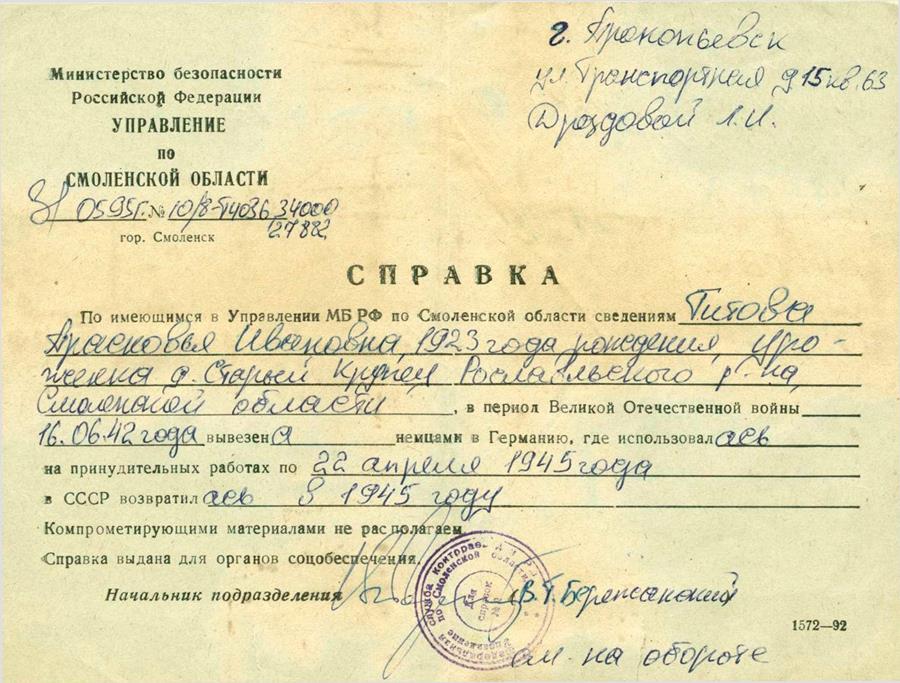 г. Прокопьевск
ул. Транспортная д 15 кв. 63
Дроздовой Л.И.
Министерство безопасности
Российской Федерации
УПРАВЛЕНИЕ
по
СМОЛЕНСКОЙ ОБЛАСТИ
31 0595г. № 10/8-Т4036 34000
27882
гор. Смоленск
СПРАВКА
По имеющимся в Управлении МБ РФ по Смоленской области сведениям Титова
Прасковья Ивановна, 1923 года рождения, уро-
женка д. Старый Крупец Рославльского р-на
Смоленской области, в период Великой Отечественной войны
16.06.42 года вывезена немцами в Германию, где использовалась
на принудительных работах по 22 апреля 1945 года
в СССР возвратилась в 1945 году
Компрометирующими материалами не располагаем.
Справка выдана для органов соцобеспечения.
Начальник подразделения В.Т. Бережанский
Для справок
Управление по Смоленской области
1572—92
см. на обороте